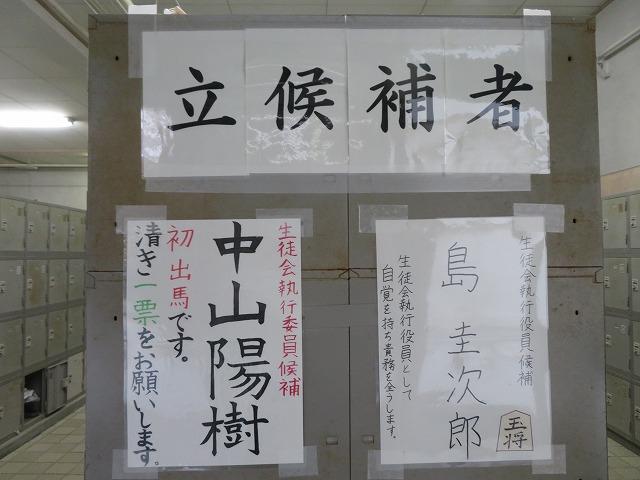 立候補者
生徒会執行委員候補
中山陽樹
初出馬です。
清き一票をお願いします。
生徒会執行役員候補
島圭次郎
生徒会執行役員として
自覚を持ち責務を全うします。
王将